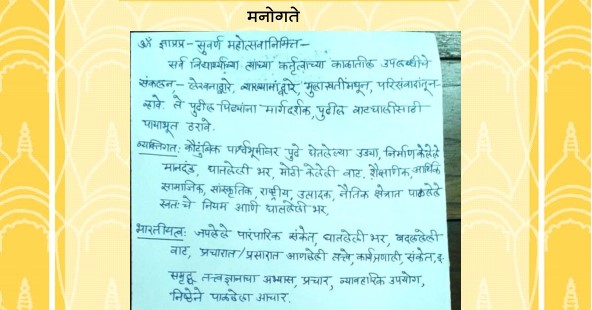 मनोगते
ॐ ज्ञाप्रप्र - सुवर्ण महोत्सवानिमित्त -
सर्व विद्यार्थ्यांच्या त्यांच्या कर्तृत्वाच्या काळातील उपलब्धींचे
संकलन - लेखनाद्वारे, व्याख्यानांद्वारे, मुलाखतींमधून, परिसंवादांतून -
व्हावे. ते पुढील पिढ्यांना मार्गदर्शक, पुढील वाटचालीसाठी
पायाभूत ठरावे.
व्यक्तिगत: कौटुंबिक पार्श्वभूमीवर पुढे घेतलेल्या उड्या, निर्माण केलेले
मानदंड, घातलेली भर, मोठी केलेली वाट. शैक्षणिक, आर्थिक
सामाजिक, सांस्कृतिक, राष्ट्रीय, उत्पादक, नैतिक क्षेत्रात पाळलेले
स्वतःचे नियम आणि घातलेली भर,
भारतीयत्व: जपलेले पारंपारिक संकेत, घातलेली भर, बदललेली
वाट, प्रचारात/प्रसारात आणलेली तत्त्वे, कार्यप्रणाली, संकेत, इ.
समृद्ध तत्त्वज्ञानाचा अभ्यास, प्रचार, व्यावहारिक उपयोग,
निष्ठेने पाळलेला आचार.